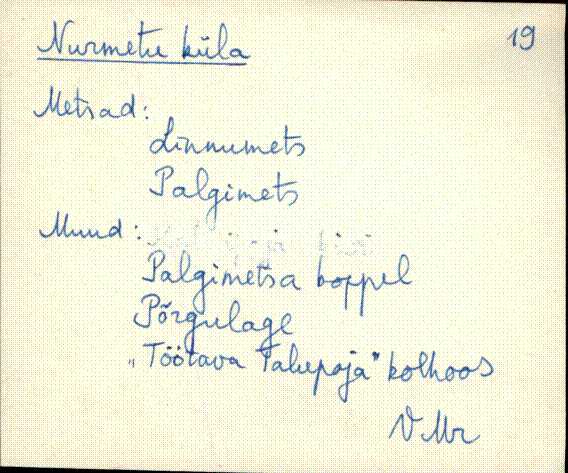 Nurmetu küla
19
Metsad:
Linnumets
Palgimets
Muud:
Palgimetsa koppel
Põrgulage
„Töötava Talupoja" kolhoos
V Mr